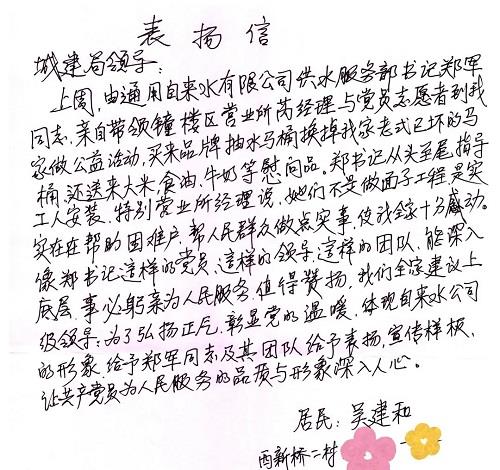 表扬信
城建局领导:
上周,由通用自来水有限公司供水服务部书记郑军
同志,亲自带领钟楼区营业所芮经理与党员志愿者到我
家做公益活动,买来品牌抽水马桶换掉我家老式已坏的马
桶,还送来大米、食油、牛奶等慰问品。郑书记从头至尾,指导
工人安装,特别营业所经理说,她们不是做面子工程是实
实在在帮助困难户,帮人民群众做点实事,使我全家十分感动。
像郑书记这样的党员,这样的领导,这样的团队,能深入
底层,事必躬亲为人民服务,值得赞扬,我们全家建议上
级领导,为了弘扬正气,彰显党的温暖,体现自来水公司
的形象,给予郑军同志及其团队给予表扬,宣传样板,
让共产党员为人民服务的品质与形象深入人心。
居民:吴建和
西新桥二村